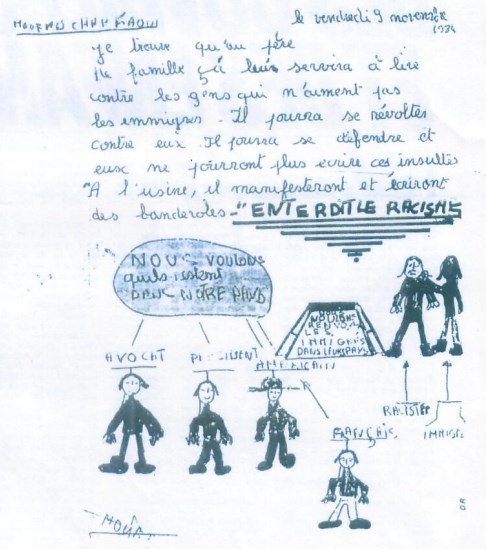 le vendredi 9 novembre
1984
je trouve qu'au père
de famille çà leur servira à lire
contre les gens qui n'aiment pas
les immigrés. Il pourra se révolter
contre eux. Il pourra se défendre et
eux ne pourront plus écrire ces insultes
"A l'usine, il manifesteront et écriront
des banderoles-" ENTERDIT LE RACISMS
NOUS VOULONS
qu'ils restent
DANS NOTRE PAYS
NOUS
VOULONS
RENVOYE
LES
IMMIGRÉS
DANS LEUR PAYS
AVOCAT PRESIDENT AMERICAIN
RACISTE
IMMIGRÉ
FRANÇAIS